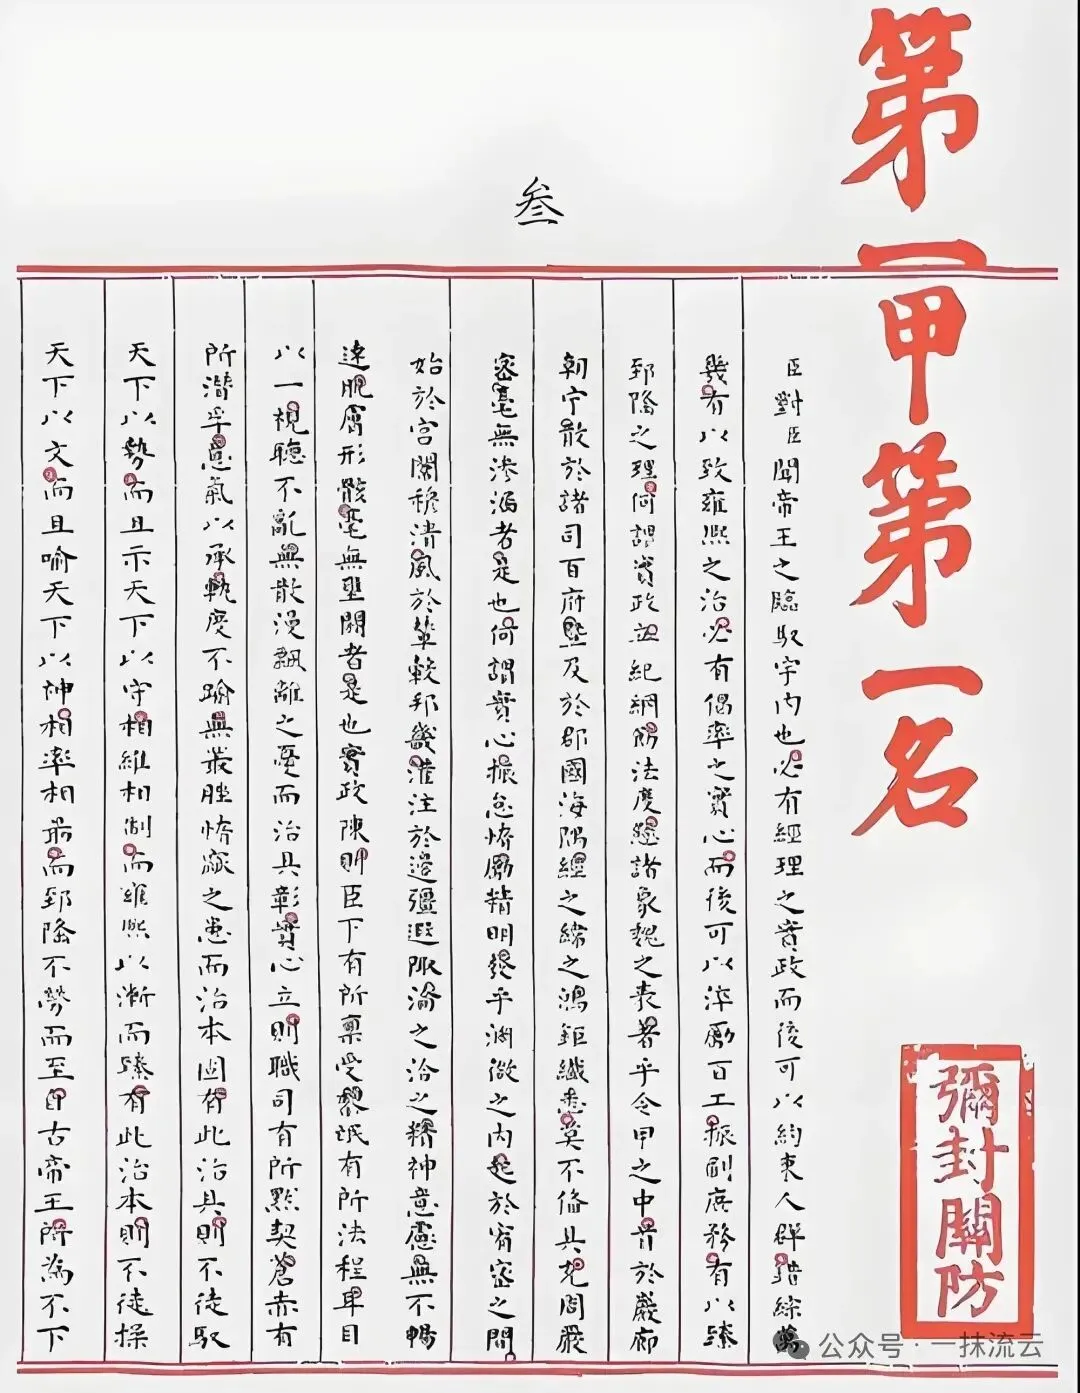 第一甲第一名
彌封關防
叁
臣對臣聞帝王之臨馭宇内也必有經理之實政而後可以約束人群錯綜萬
幾有以致雍熙之治必有倡率之實心而後可以淬勵百工振刷庶務有以臻
郅隆之理何謂實政立紀綱飭法度懸諸象魏之表著乎令甲之中首於巖廊
朝宁散於諸司百府暨及於郡國海隅經之緯之鴻鉅纖悉莫不備具充周嚴
密毫無滲漏者是也何謂實心振怠惰勵精明發乎淵微之内起於宥密之間
始於宫闈穆清風於輦轂邦畿灌注於邉疆遐陬淪之洽之精神意慮無不暢
達肌膚形骸毫無壅閼者是也實政陳則臣下有所禀受黎氓有所法程耳目
以一視聽不亂無散漫飄離之憂而治具彰實心立則職司有所默契蒼赤有
所潛孚意氣以承軌度不踰無叢脞惰窳之患而治本固有此治具則不徒馭
天下以勢而且示天下以守相維相制而雍熙以漸而臻有此治本則不徒操
天下以文而且喻天下以神相率相勗而郅隆不勞而至自古帝王所為不下
公众号·一抹流云